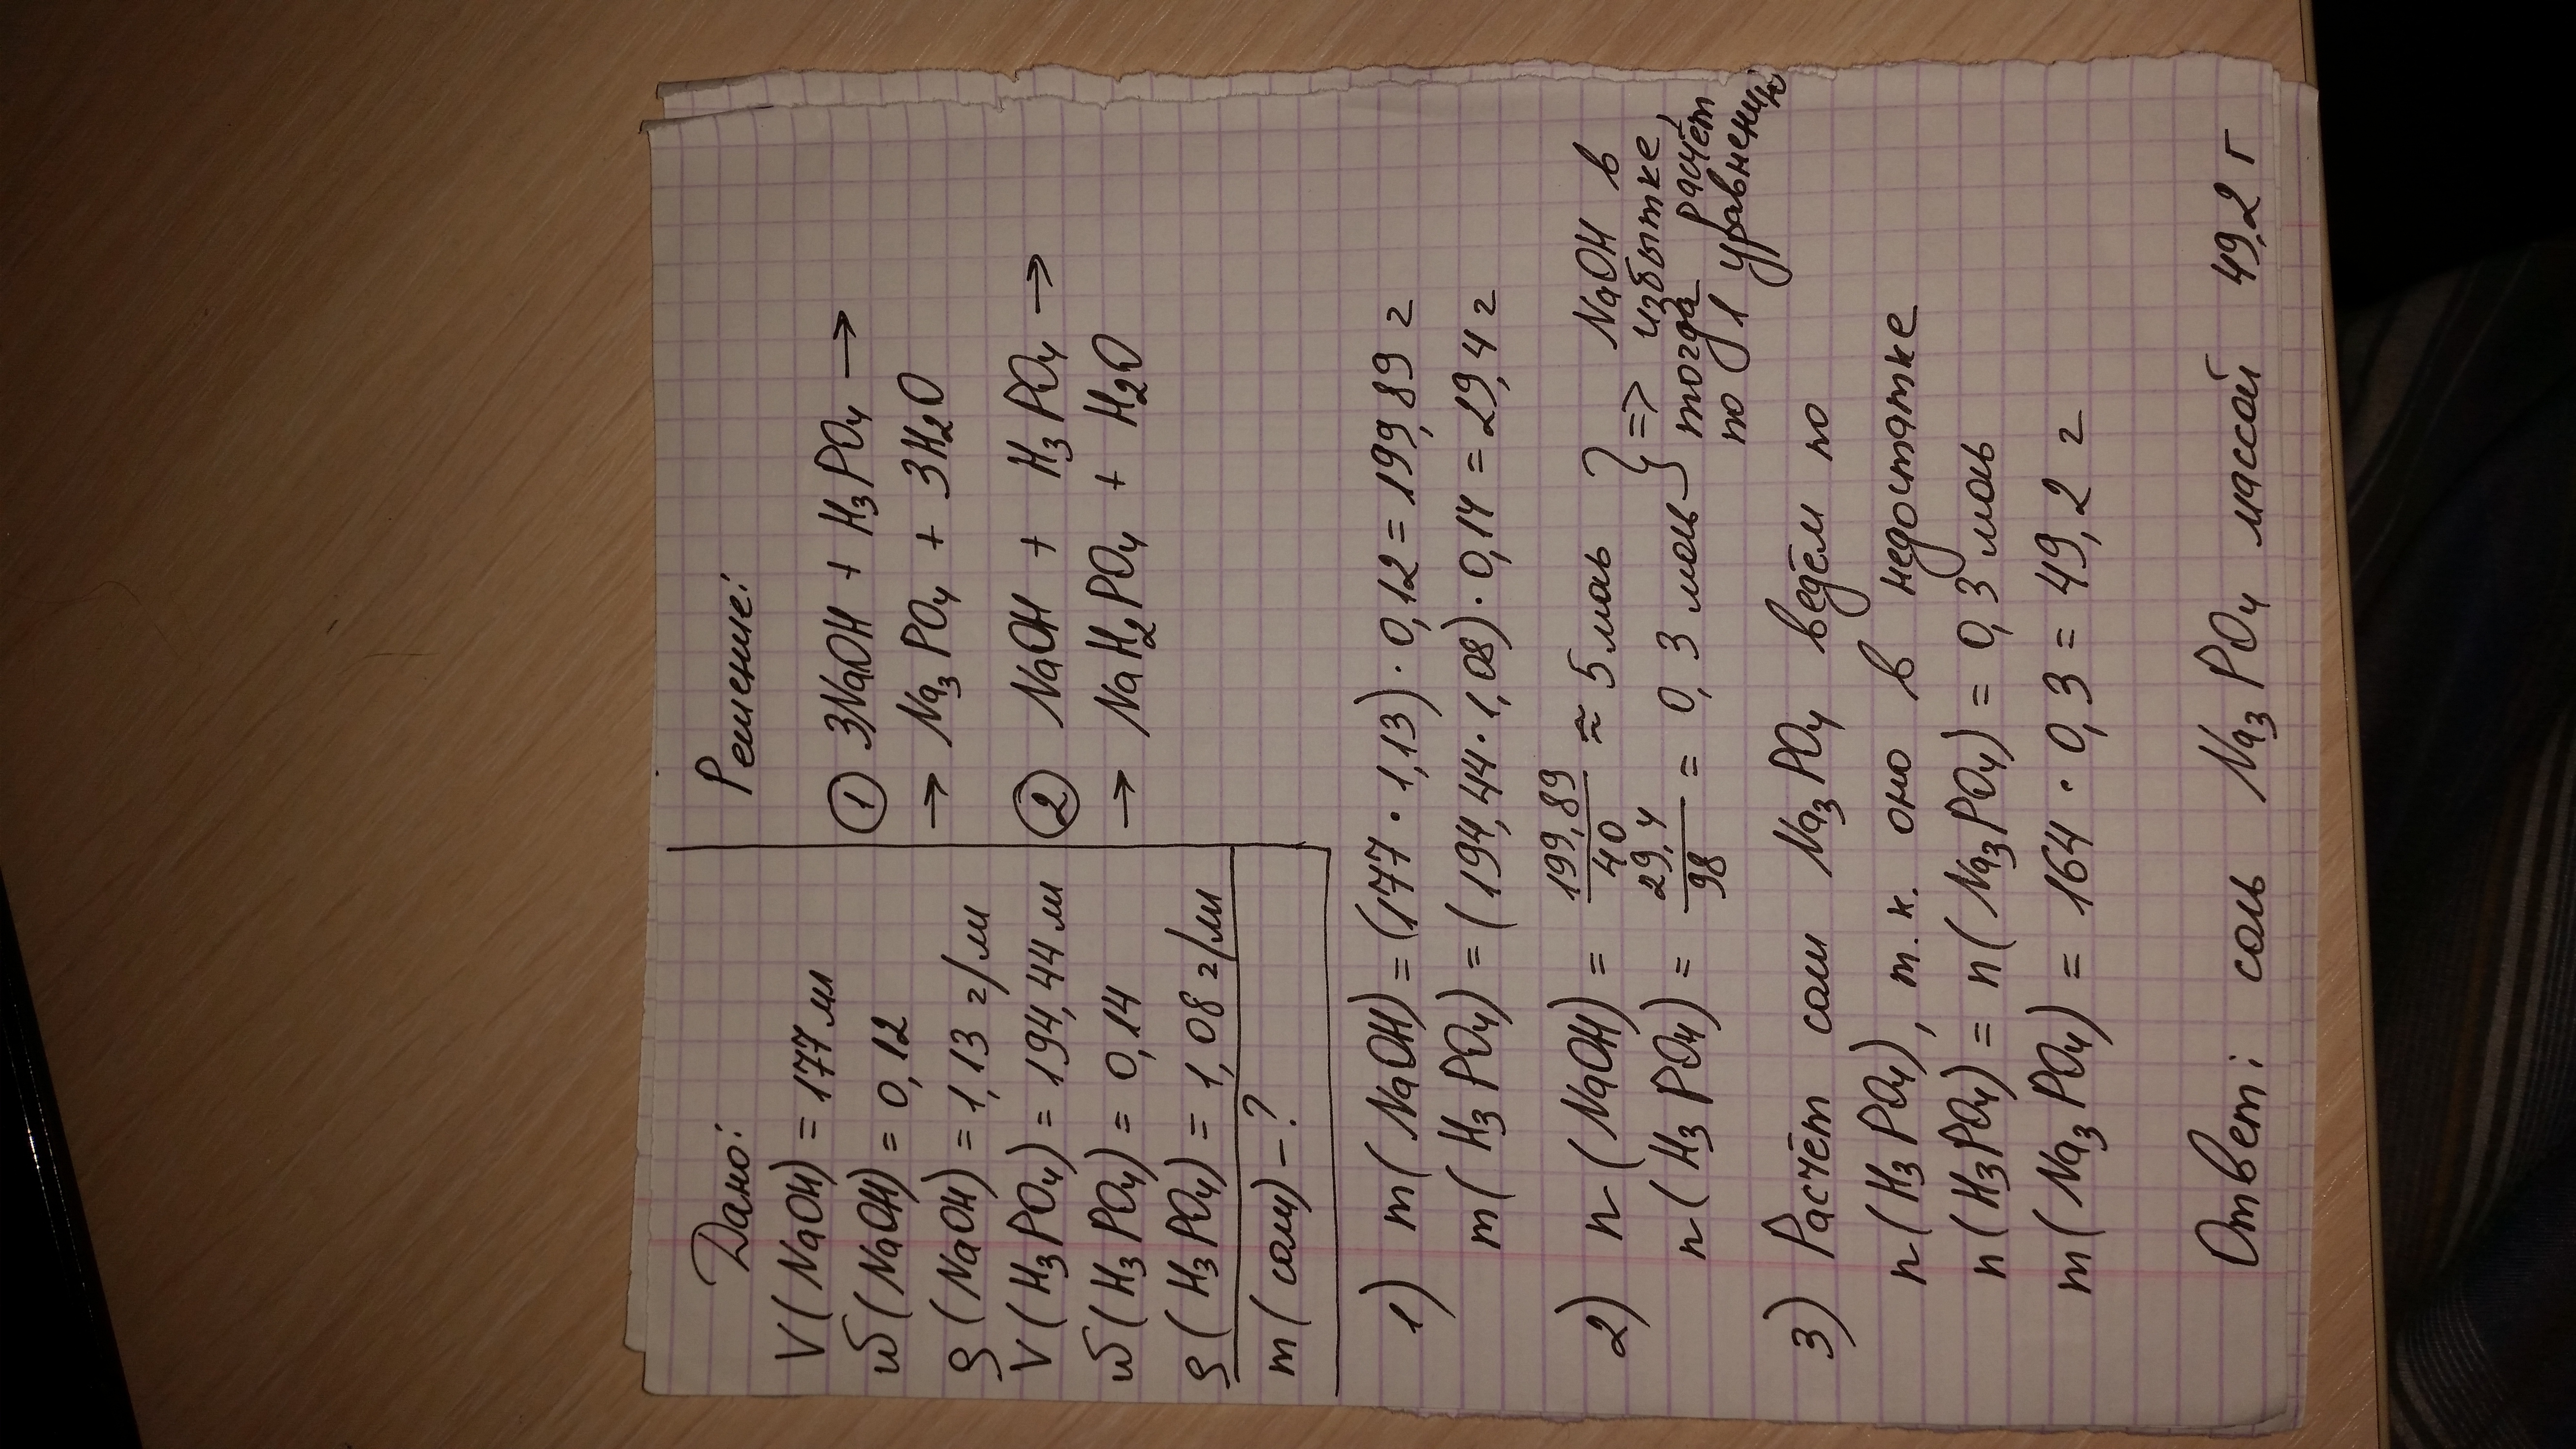 Дано:
V(NaOH) = 177 мл
ω(NaOH) = 0,12
ρ(NaOH) = 1,13 г/мл
V(H₃PO₄) = 194,44 мл
ω(H₃PO₄) = 0,14
ρ(H₃PO₄) = 1,08 г/мл
m(соли) - ?
Решение:
① 3NaOH + H₃PO₄ →
→ Na₃PO₄ + 3H₂O
② NaOH + H₃PO₄ →
→ NaH₂PO₄ + H₂O
1) m(NaOH) = (177 · 1,13) · 0,12 = 199,89 г
m(H₃PO₄) = (194,44 · 1,08) · 0,14 = 29,4 г
2) n(NaOH) = 199,89/40 ≈ 5 моль
n(H₃PO₄) = 29,4/98 = 0,3 моль } => NaOH в
избытке,
тогда расчёт
по 1 уравнению
3) Расчёт соли Na₃PO₄ ведём по
n(H₃PO₄), т.к. оно в недостатке
n(H₃PO₄) = n(Na₃PO₄) = 0,3 моль
m(Na₃PO₄) = 164 · 0,3 = 49,2 г
Ответ: соль Na₃PO₄ массой 49,2 г